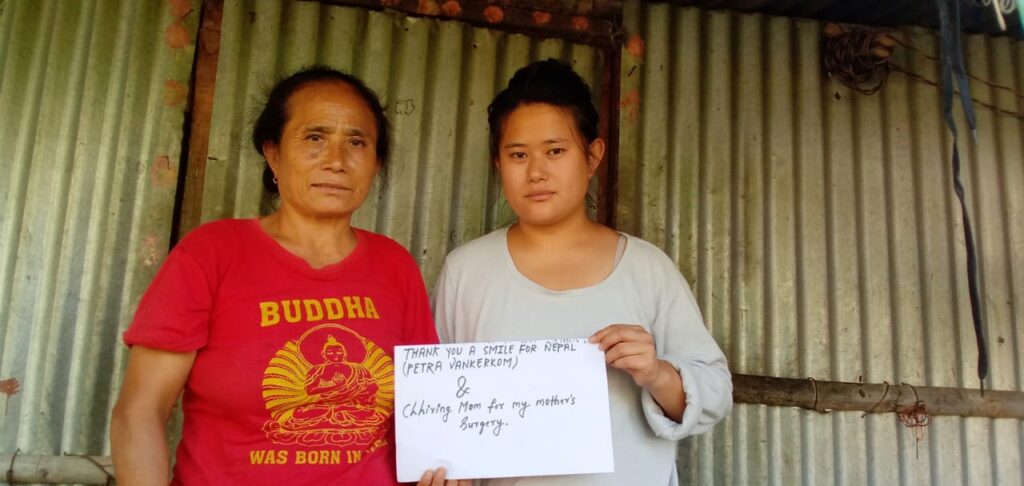 BUDDHA
WAS BORN IN
THANK YOU A SMILE FOR NEPAL
(PETRA VANKERKOM)
&
Chhiring Mom for my mother's
Surgery.